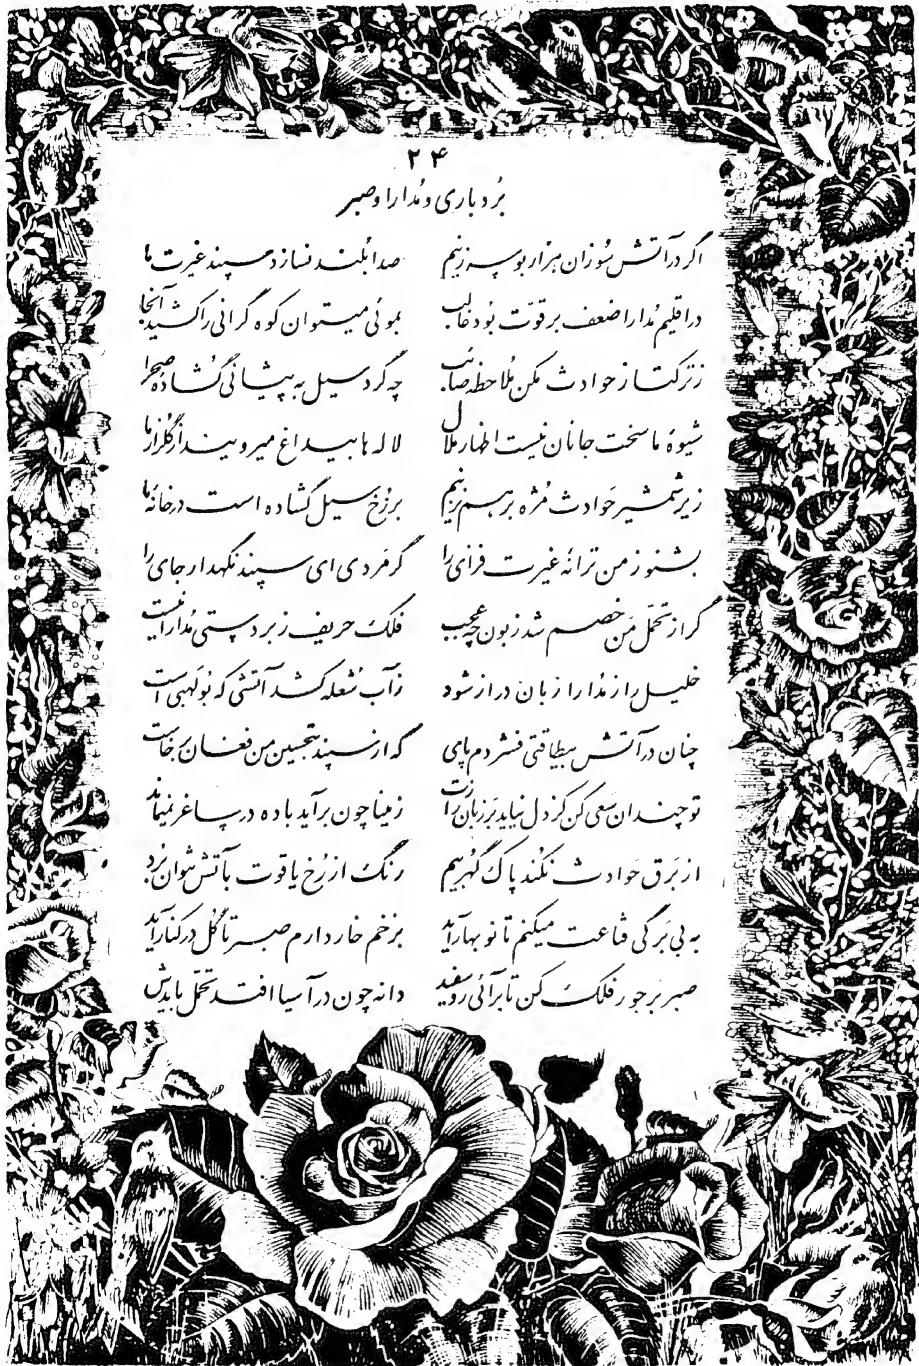 ۲۴
بُردباری و مُدارا و صبر
اگر در آتش سُوزان هزار بوسه زنیم صدا بُلند نسازد سپند غیرت ما
در اقلیم مُدارا ضعف بر قوّت بُود غالب بموئی میتوان کوه گرانی را کشید آنجا
ز ترکتاز حوادث مکن مُلاحظه صائب چه گرد سیل به پیشانی گُشاده صحرا
شیوۀ ما سخت جانان نیست اظهار ملال لاله ها بیداغ میرویند از گُلزار ما
زیر شمشیر حَوادث مُژه بر هم نزنیم بر رُخ سیل گشاده است در خانۀ ما
بشنو ز من ترانۀ غیرت فزای را گر مَردی ای سپند نگهدار جای را
گر از تحمّل مَن خصم شد زبون چه عجب فلک حریف زبر دستی مُدارا نیست
خلیل را ز مُدارا زبان دراز شود ز آب شُعله کشد آتشی که بُولهبی است
چنان در آتش بیطاقتی فشردم پای که از سپند بتحسین من فغان برخاست
تو چندان سعی کن کز دل نیاید بر زبان رازت ز مینا چون برآید باده در ساغر نمیماند
از بَرق حَوادث نکند پاک گُهر بیم رنگ از رُخ یاقوت بآتش نتوان بُرد
به بی بَرگی قناعت میکنم تا نو بهار آید بزخم خار دارم صبر تا گُل در کنار آید
صبر بَر جور فلک کن تا برآئی رو سفید دانه چون در آسیا افتد تحمّل بایدش